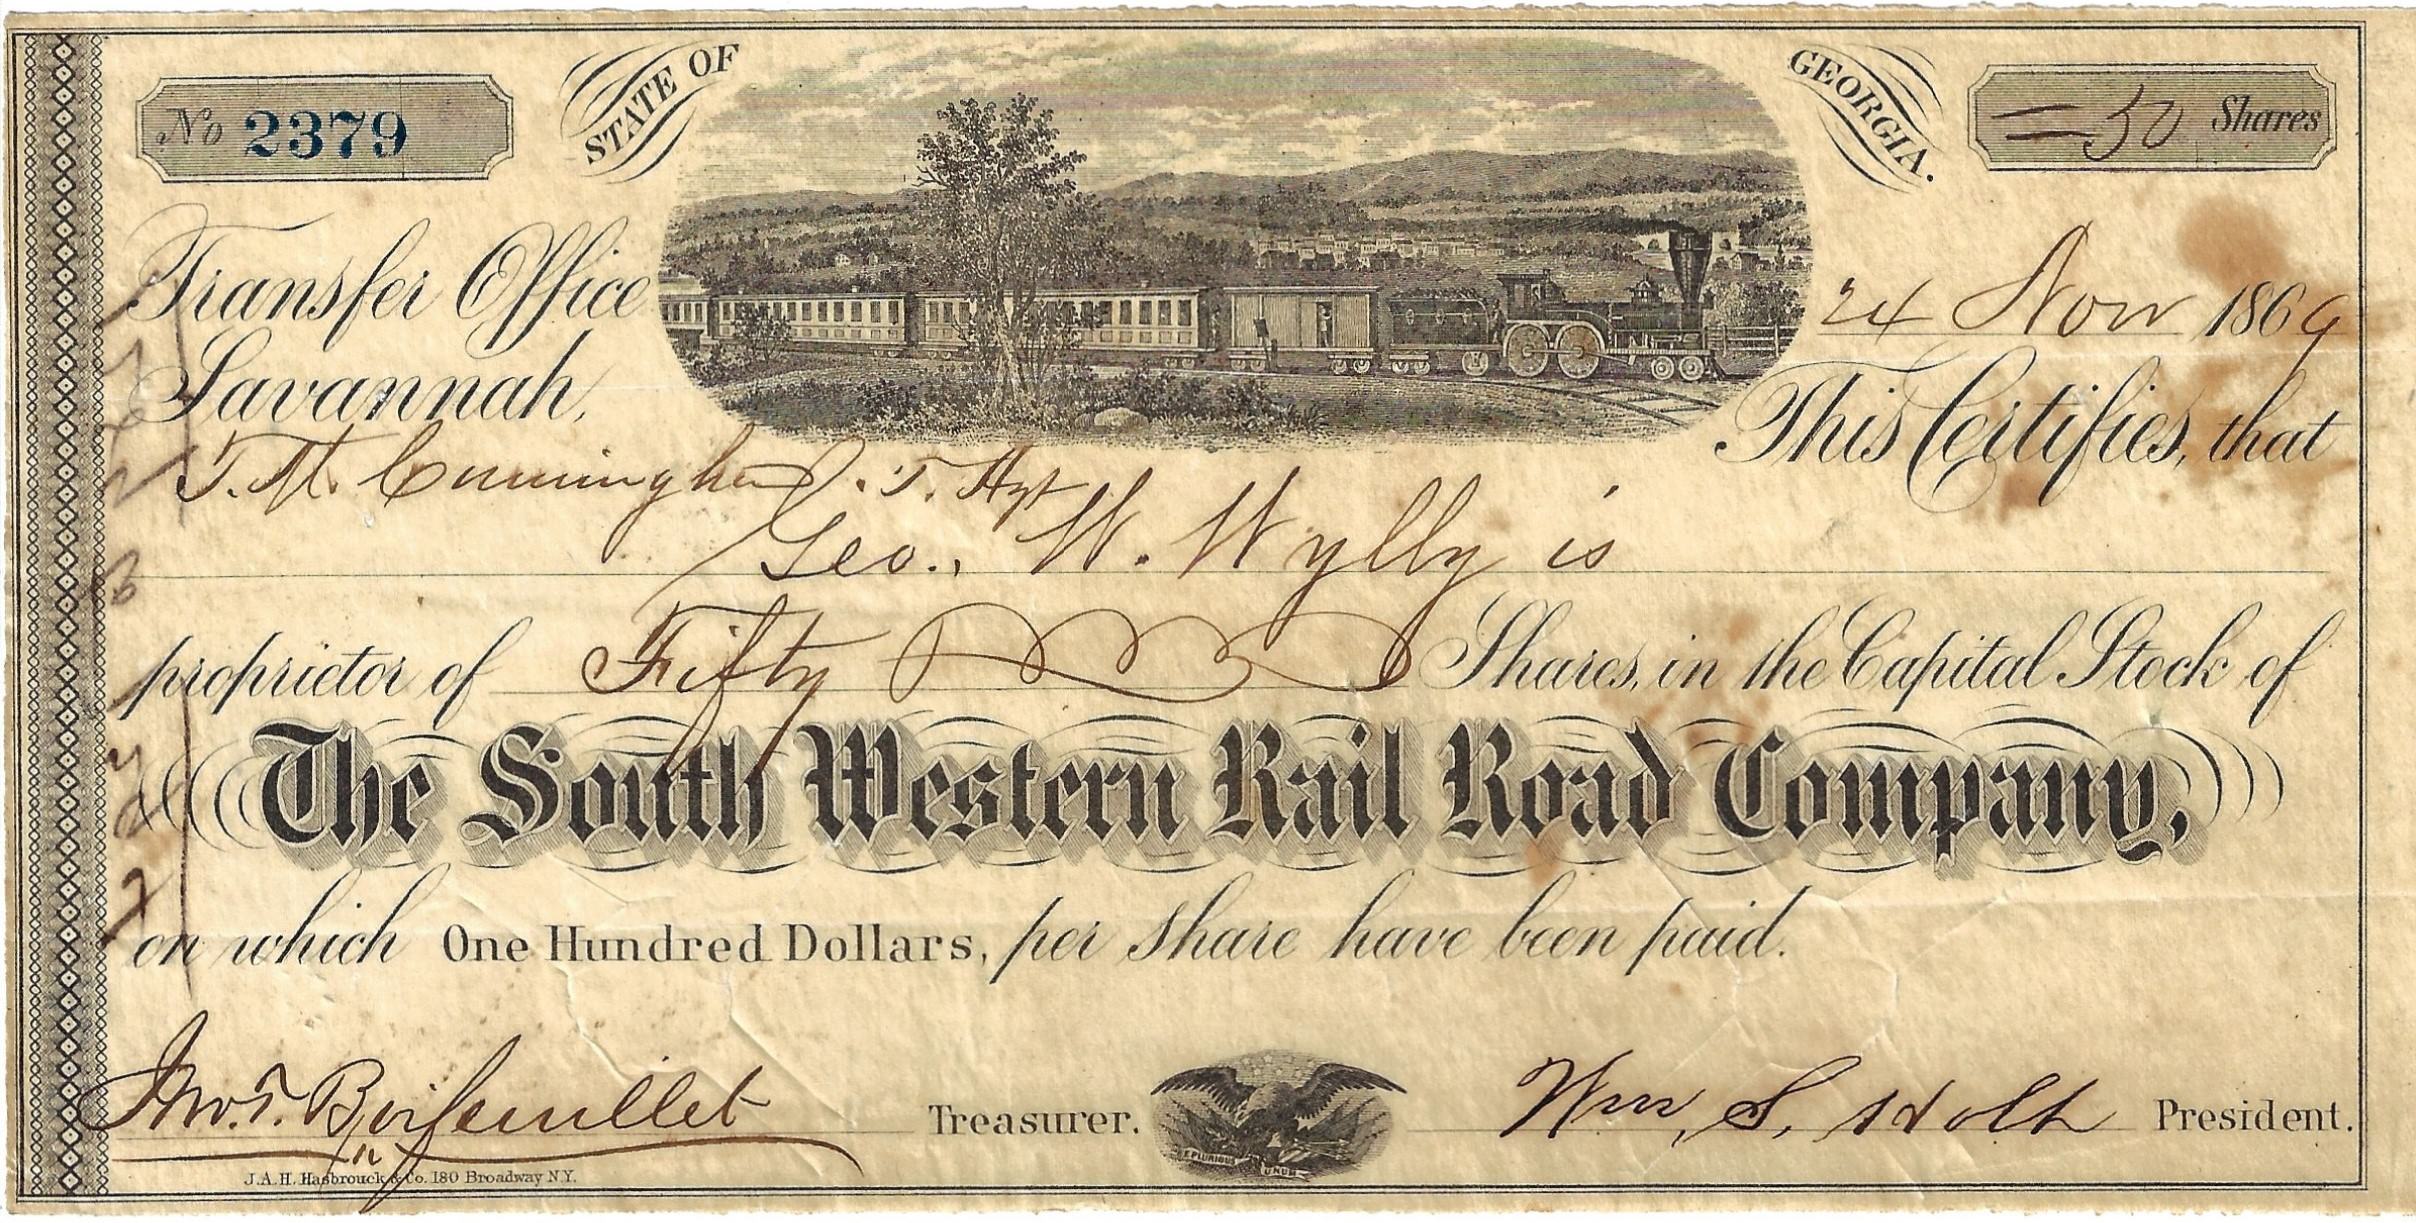 No 2379
STATE OF GEORGIA.
= 50 Shares
Transfer Office
Savannah,
24 Nov 1869
This Certifies, that
T. M. Cunningham T. Agt
Geo. W. Wylly is
proprietor of Fifty Shares, in the Capital Stock of
The South Western Rail Road Company,
on which One Hundred Dollars, per share have been paid.
Jno. T. Boifeuillet Treasurer.
E PLURIBUS UNUM
Wm. S. Holt President.
J.A.H. Hasbrouck & Co. 180 Broadway N.Y.